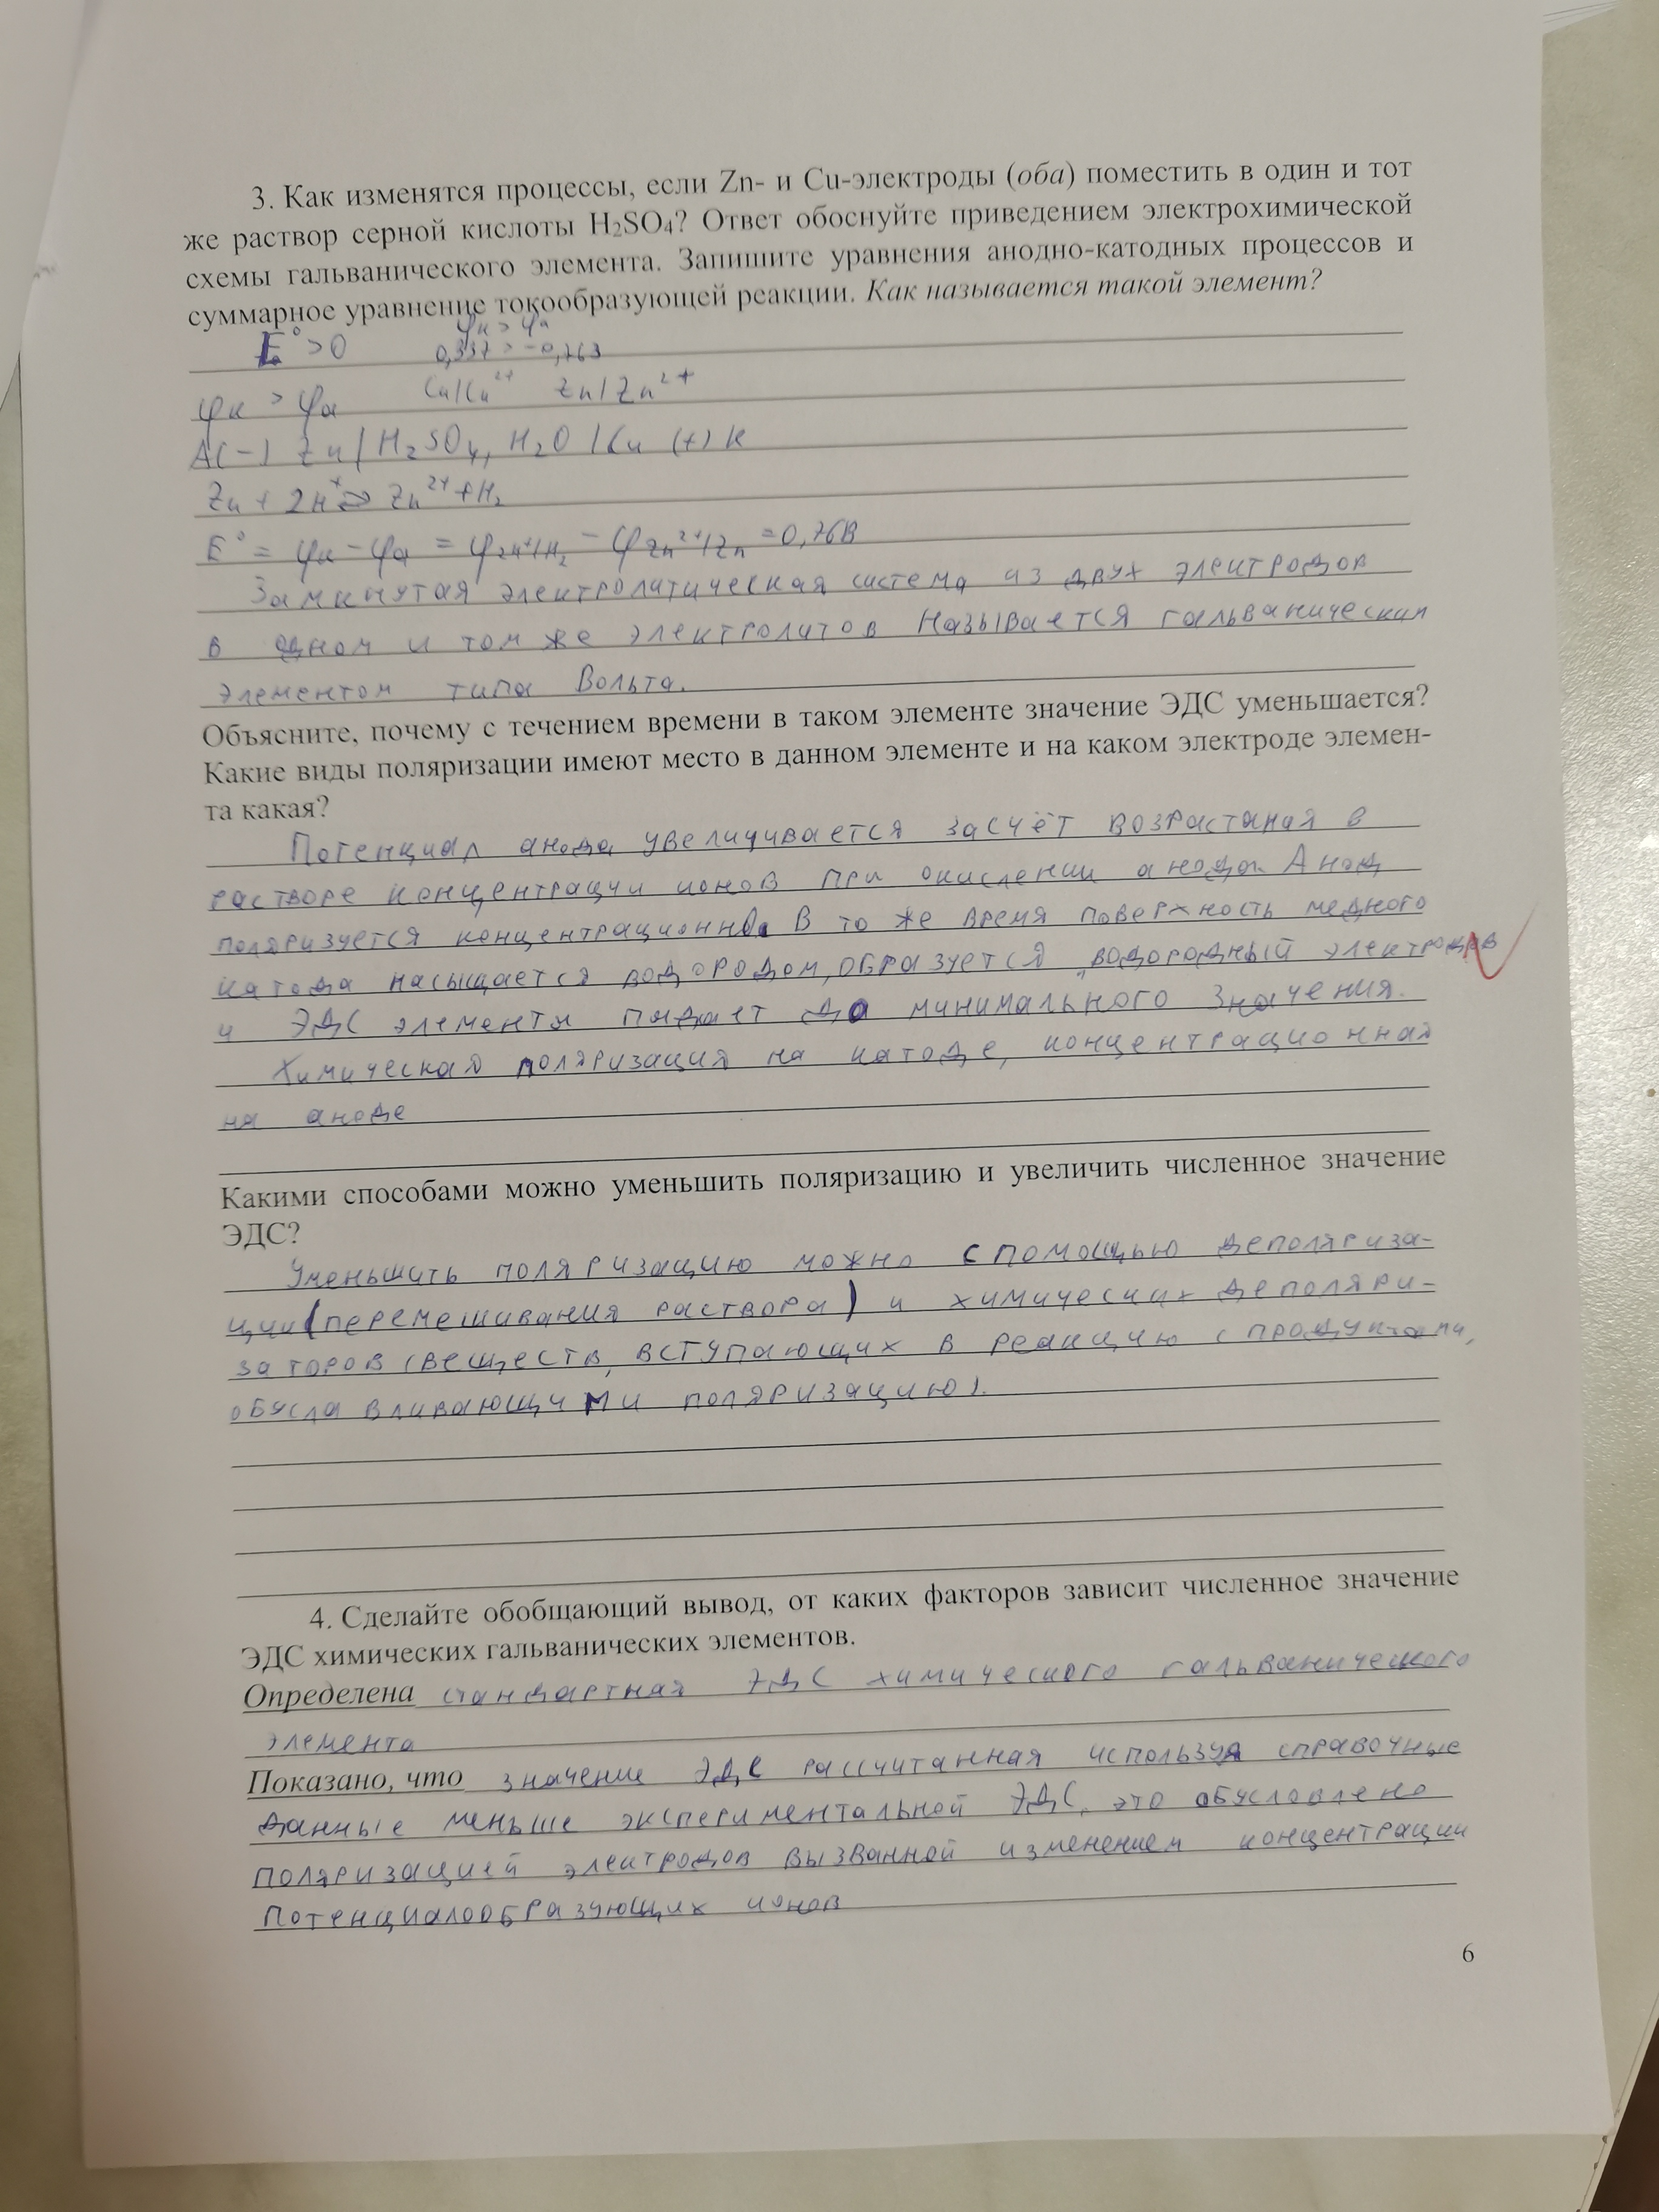 3. Как изменятся процессы, если Zn- и Cu-электроды (оба) поместить в один и тот
же раствор серной кислоты H₂SO₄? Ответ обоснуйте приведением электрохимической
схемы гальванического элемента. Запишите уравнения анодно-катодных процессов и
суммарное уравнение токообразующей реакции. Как называется такой элемент?
E° > 0 φк > φа
0,337 > -0,763
φк > φа Cu/Cu²⁺ Zn/Zn²⁺
A(-) Zn | H₂SO₄, H₂O | Cu (+) К
Zn + 2H⁺ ⇄ Zn²⁺ + H₂
E° = φк - φа = φ2H⁺/H₂ - φZn²⁺/Zn = 0,76В
Замкнутая электролитическая система из двух электродов
в одном и том же электролитов называется гальваническим
элементом типа Вольта.
Объясните, почему с течением времени в таком элементе значение ЭДС уменьшается?
Какие виды поляризации имеют место в данном элементе и на каком электроде элемен-
та какая?
Потенциал анода увеличивается засчёт возрастания в
растворе концентрации ионов при окислении анода. Анод
поляризуется концентрационно. В то же время поверхность медного
катода насыщается водородом, образуется "водородный электрод"
и ЭДС элемента падает до минимального значения.
Химическая поляризация на катоде, концентрационная
на аноде
Какими способами можно уменьшить поляризацию и увеличить численное значение
ЭДС?
Уменьшить поляризацию можно с помощью деполяриза-
ции (перемешивания раствора) и химических деполяри-
заторов (веществ, вступающих в реакцию с продуктами,
обуславливающими поляризацию).
4. Сделайте обобщающий вывод, от каких факторов зависит численное значение
ЭДС химических гальванических элементов.
Определена стандартная ЭДС химического гальванического
элемента
Показано, что значение ЭДС рассчитанная используя справочные
данные меньше экспериментальной ЭДС, это обусловлено
поляризацией электродов вызванной изменением концентрации
потенциалообразующих ионов
6